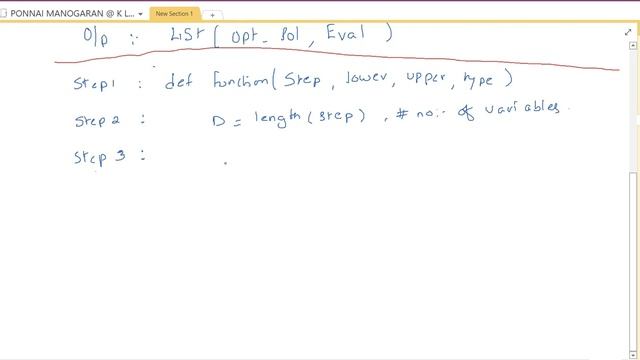 PONNAI MANOGARAN @ K L...
New Section 1
O/p :- LIST ( Opt_Sol, Eval )
Step 1 : def Function( Step, lower, upper, type )
Step 2 : D = length( step ) , # no:- of variables.
Step 3 :